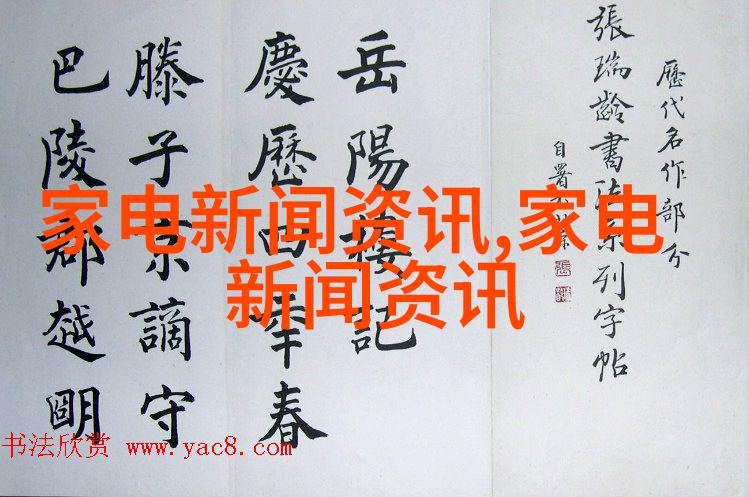 歷代名作部分
張瑞齡書法系列字帖
自署
岳陽樓記
慶歷四年春
滕子京謫守
巴陵郡越明
家电新闻资讯,家电
新闻资讯
书法欣赏 www.yac8.com